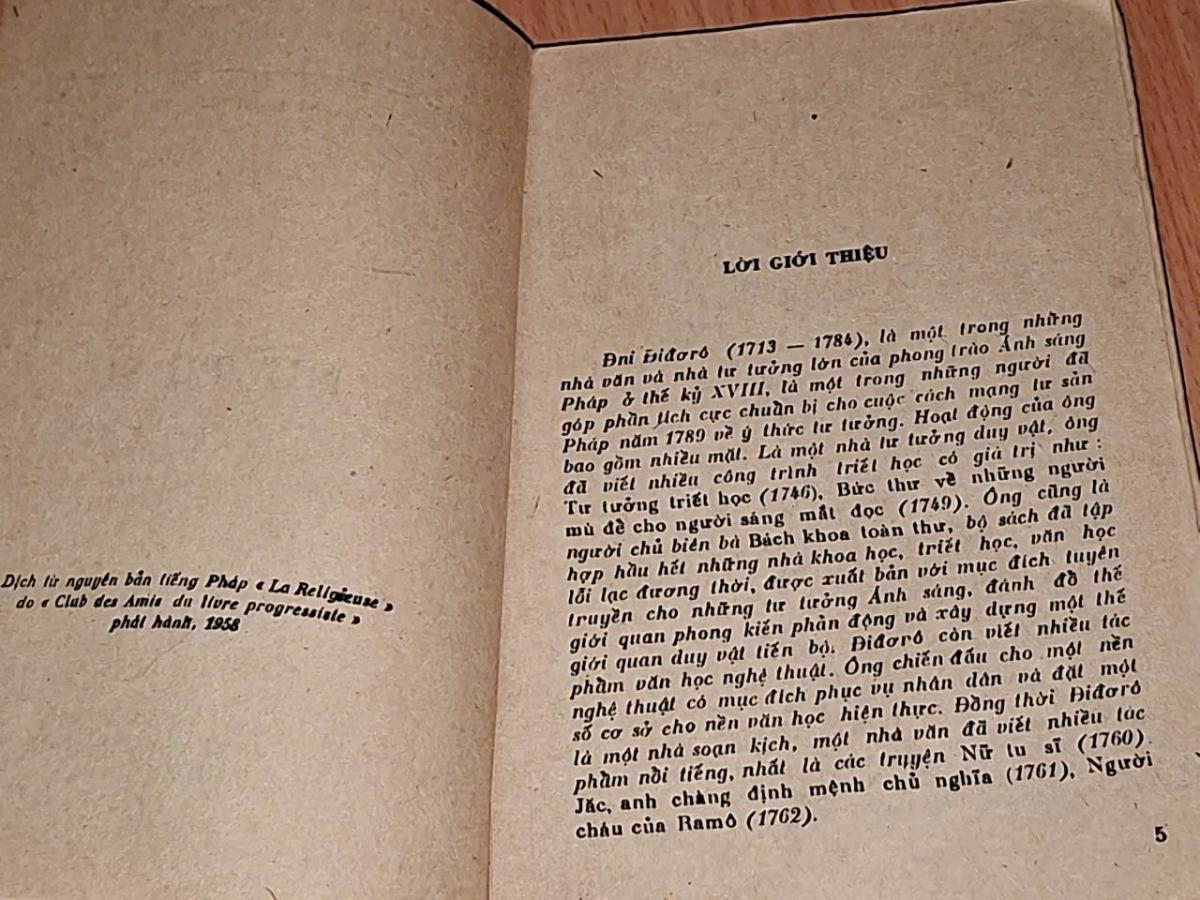 Dịch từ nguyên bản tiếng Pháp « La Religieuse »
do « Club des Amis du livre progressiste »
phát hành, 1958
LỜI GIỚI THIỆU
Đni Điđơrô (1713 — 1784), là một trong những
nhà văn và nhà tư tưởng lớn của phong trào Ánh sáng
Pháp ở thế kỷ XVIII, là một trong những người đã
góp phần tích cực chuẩn bị cho cuộc cách mạng tư sản
Pháp năm 1789 về ý thức tư tưởng. Hoạt động của ông
bao gồm nhiều mặt. Là một nhà tư tưởng duy vật, ông
đã viết nhiều công trình triết học có giá trị như :
Tư tưởng triết học (1746), Bức thư về những người
mù để cho người sáng mắt đọc (1749). Ông cũng là
người chủ biên bà Bách khoa toàn thư, bộ sách đã tập
hợp hầu hết những nhà khoa học, triết học, văn học
lỗi lạc đương thời, được xuất bản với mục đích tuyên
truyền cho những tư tưởng Ánh sáng, đánh đổ thế
giới quan phong kiến phản động và xây dựng một thế
giới quan duy vật tiến bộ. Điđơrô còn viết nhiều tác
phẩm văn học nghệ thuật. Ông chiến đấu cho một nền
nghệ thuật có mục đích phục vụ nhân dân và đặt một
số cơ sở cho nền văn học hiện thực. Đồng thời Điđơrô
là một nhà soạn kịch, một nhà văn đã viết nhiều tác
phẩm nổi tiếng, nhất là các truyện Nữ tu sĩ (1760).
Jắc, anh chàng định mệnh chủ nghĩa (1761), Người
cháu của Ramô (1762).
5